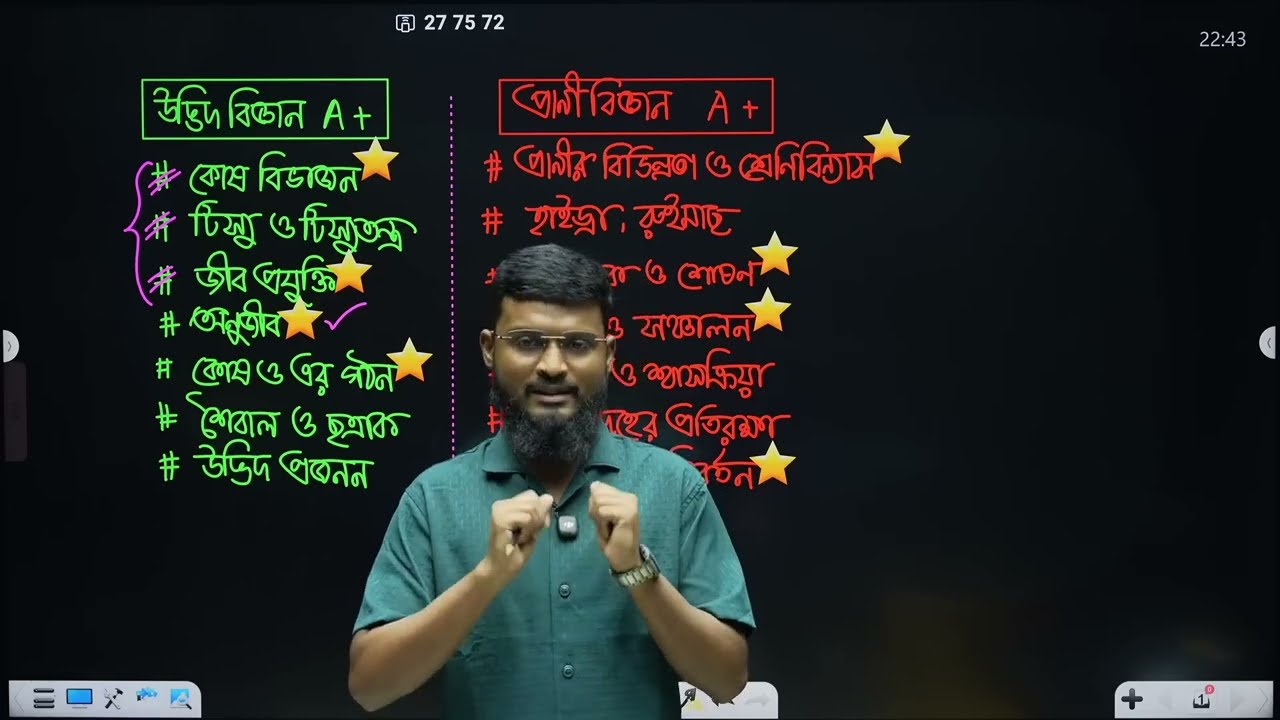 27 75 72
22:43
উদ্ভিদ বিজ্ঞান A+
# কোষ বিভাজন
# টিস্যু ও টিস্যুতন্ত্র
# জীব প্রযুক্তি
# অনুজীব
# কোষ ও এর গঠন
# শৈবাল ও ছত্রাক
# উদ্ভিদ প্রজনন
প্রাণীবিজ্ঞান A+
# প্রাণীর বিভিন্নতা ও শ্রেনিবিন্যাস
# হাইড্রা, রুইমাছ
ও শোষন
ও সঞ্চালন
ও শ্বাসক্রিয়া
# প্রতিরক্ষা
1
0